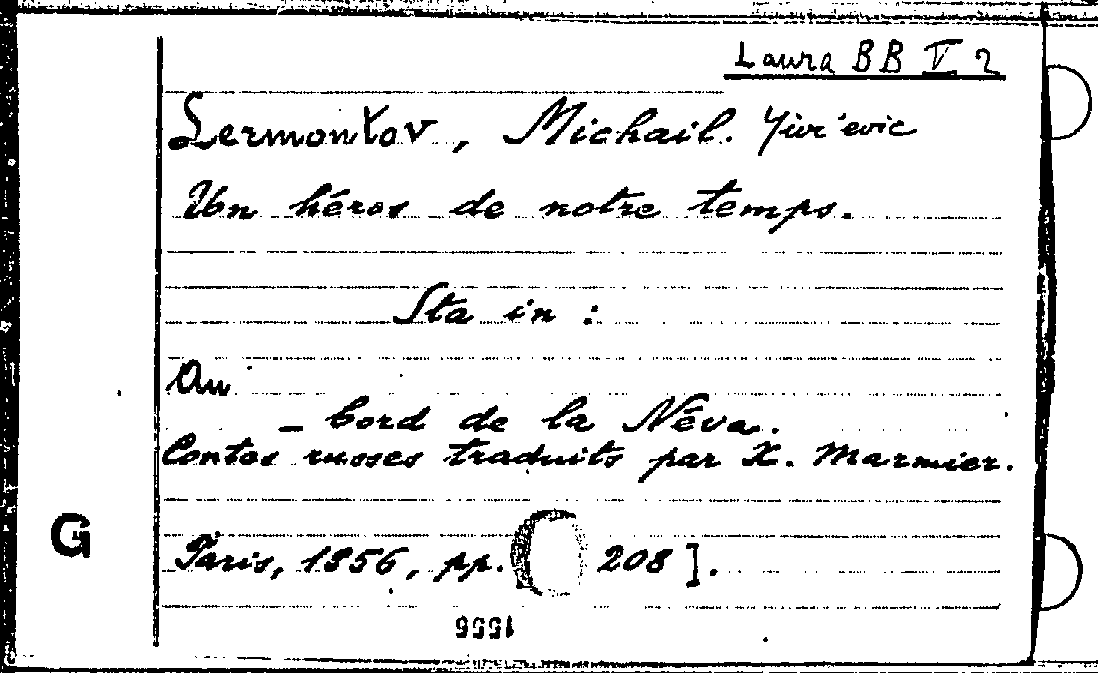 Laura BB V 2
Lermontov, Michail. Jur'evic
Un héros de notre temps.
Sta in :
Au
– bord de la Néva.
Contes russes traduits par X. Marmier.
G
Paris, 1856, pp. 208].